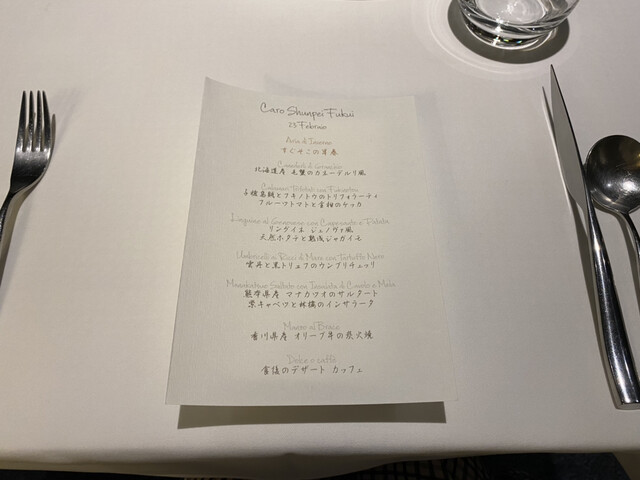 Caro Shunpei Fukui
23 Febbraio
Aria di Inverno
すぐそこの草春
Canederli di Granchio
北海道産 毛蟹のカネーデルリ風
子持烏賊とフキノトウのトリフォラーティ
フルーツトマトと甘柑のケッカ
Linguine al Genovese con Capesante e Patata
リングイネ ジェノヴァ風
天然ホタテと熟成ジャガイモ
Umbricelli ai Ricci di Mare con Tartufo Nero
雲丹と黒トリュフのウンブリチェッリ
熊本県産 マナガツオのサルタート
紫キャベツと林檎のインサラータ
Manzo al Brace
香川県産 オリーブ牛の炭火焼
Dolce e caffè
食後のデザート カッフェ